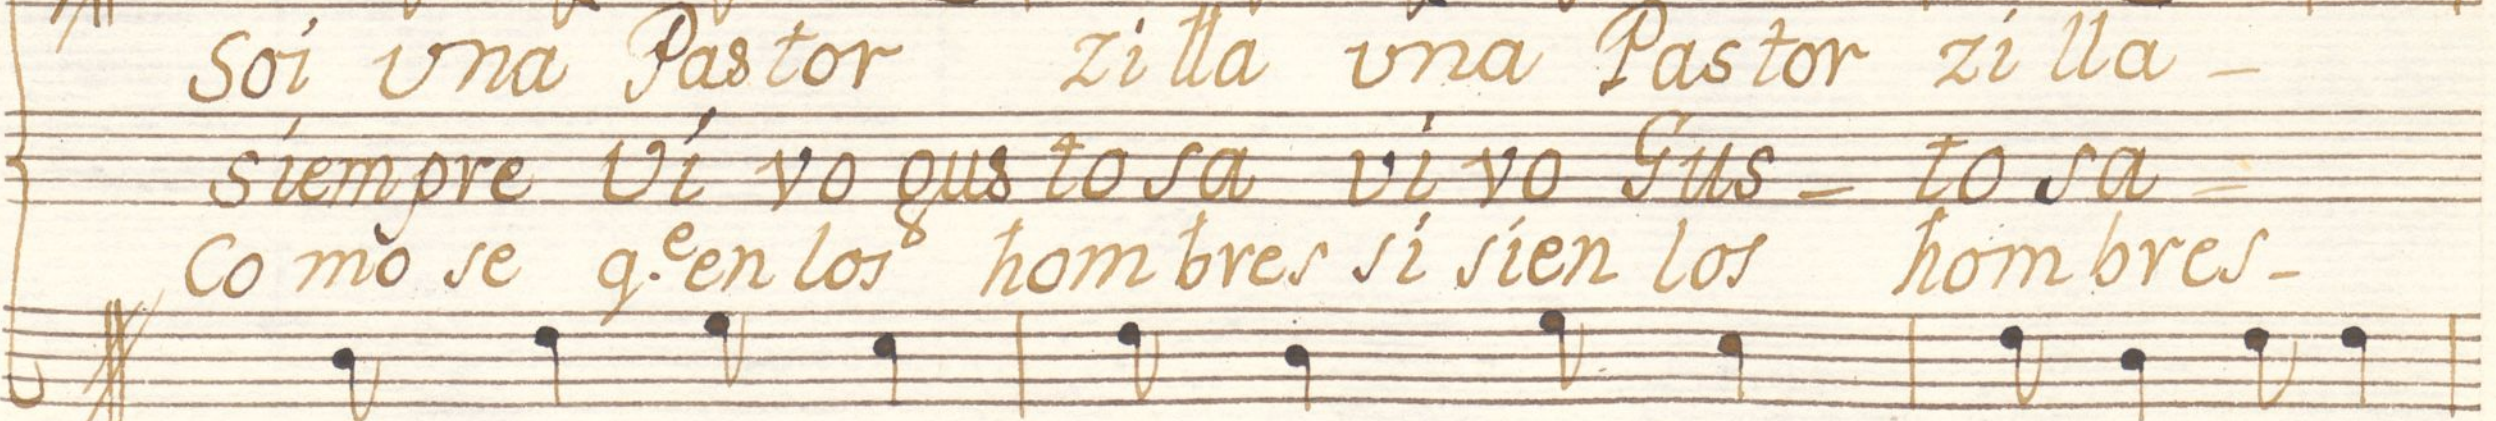 Soi una Pastor zi lla una Pastor zi lla -
siempre Vi vo gus to sa vi vo Gus - to sa -
Co mo se q.e en los hom bres si sien los hom bres -